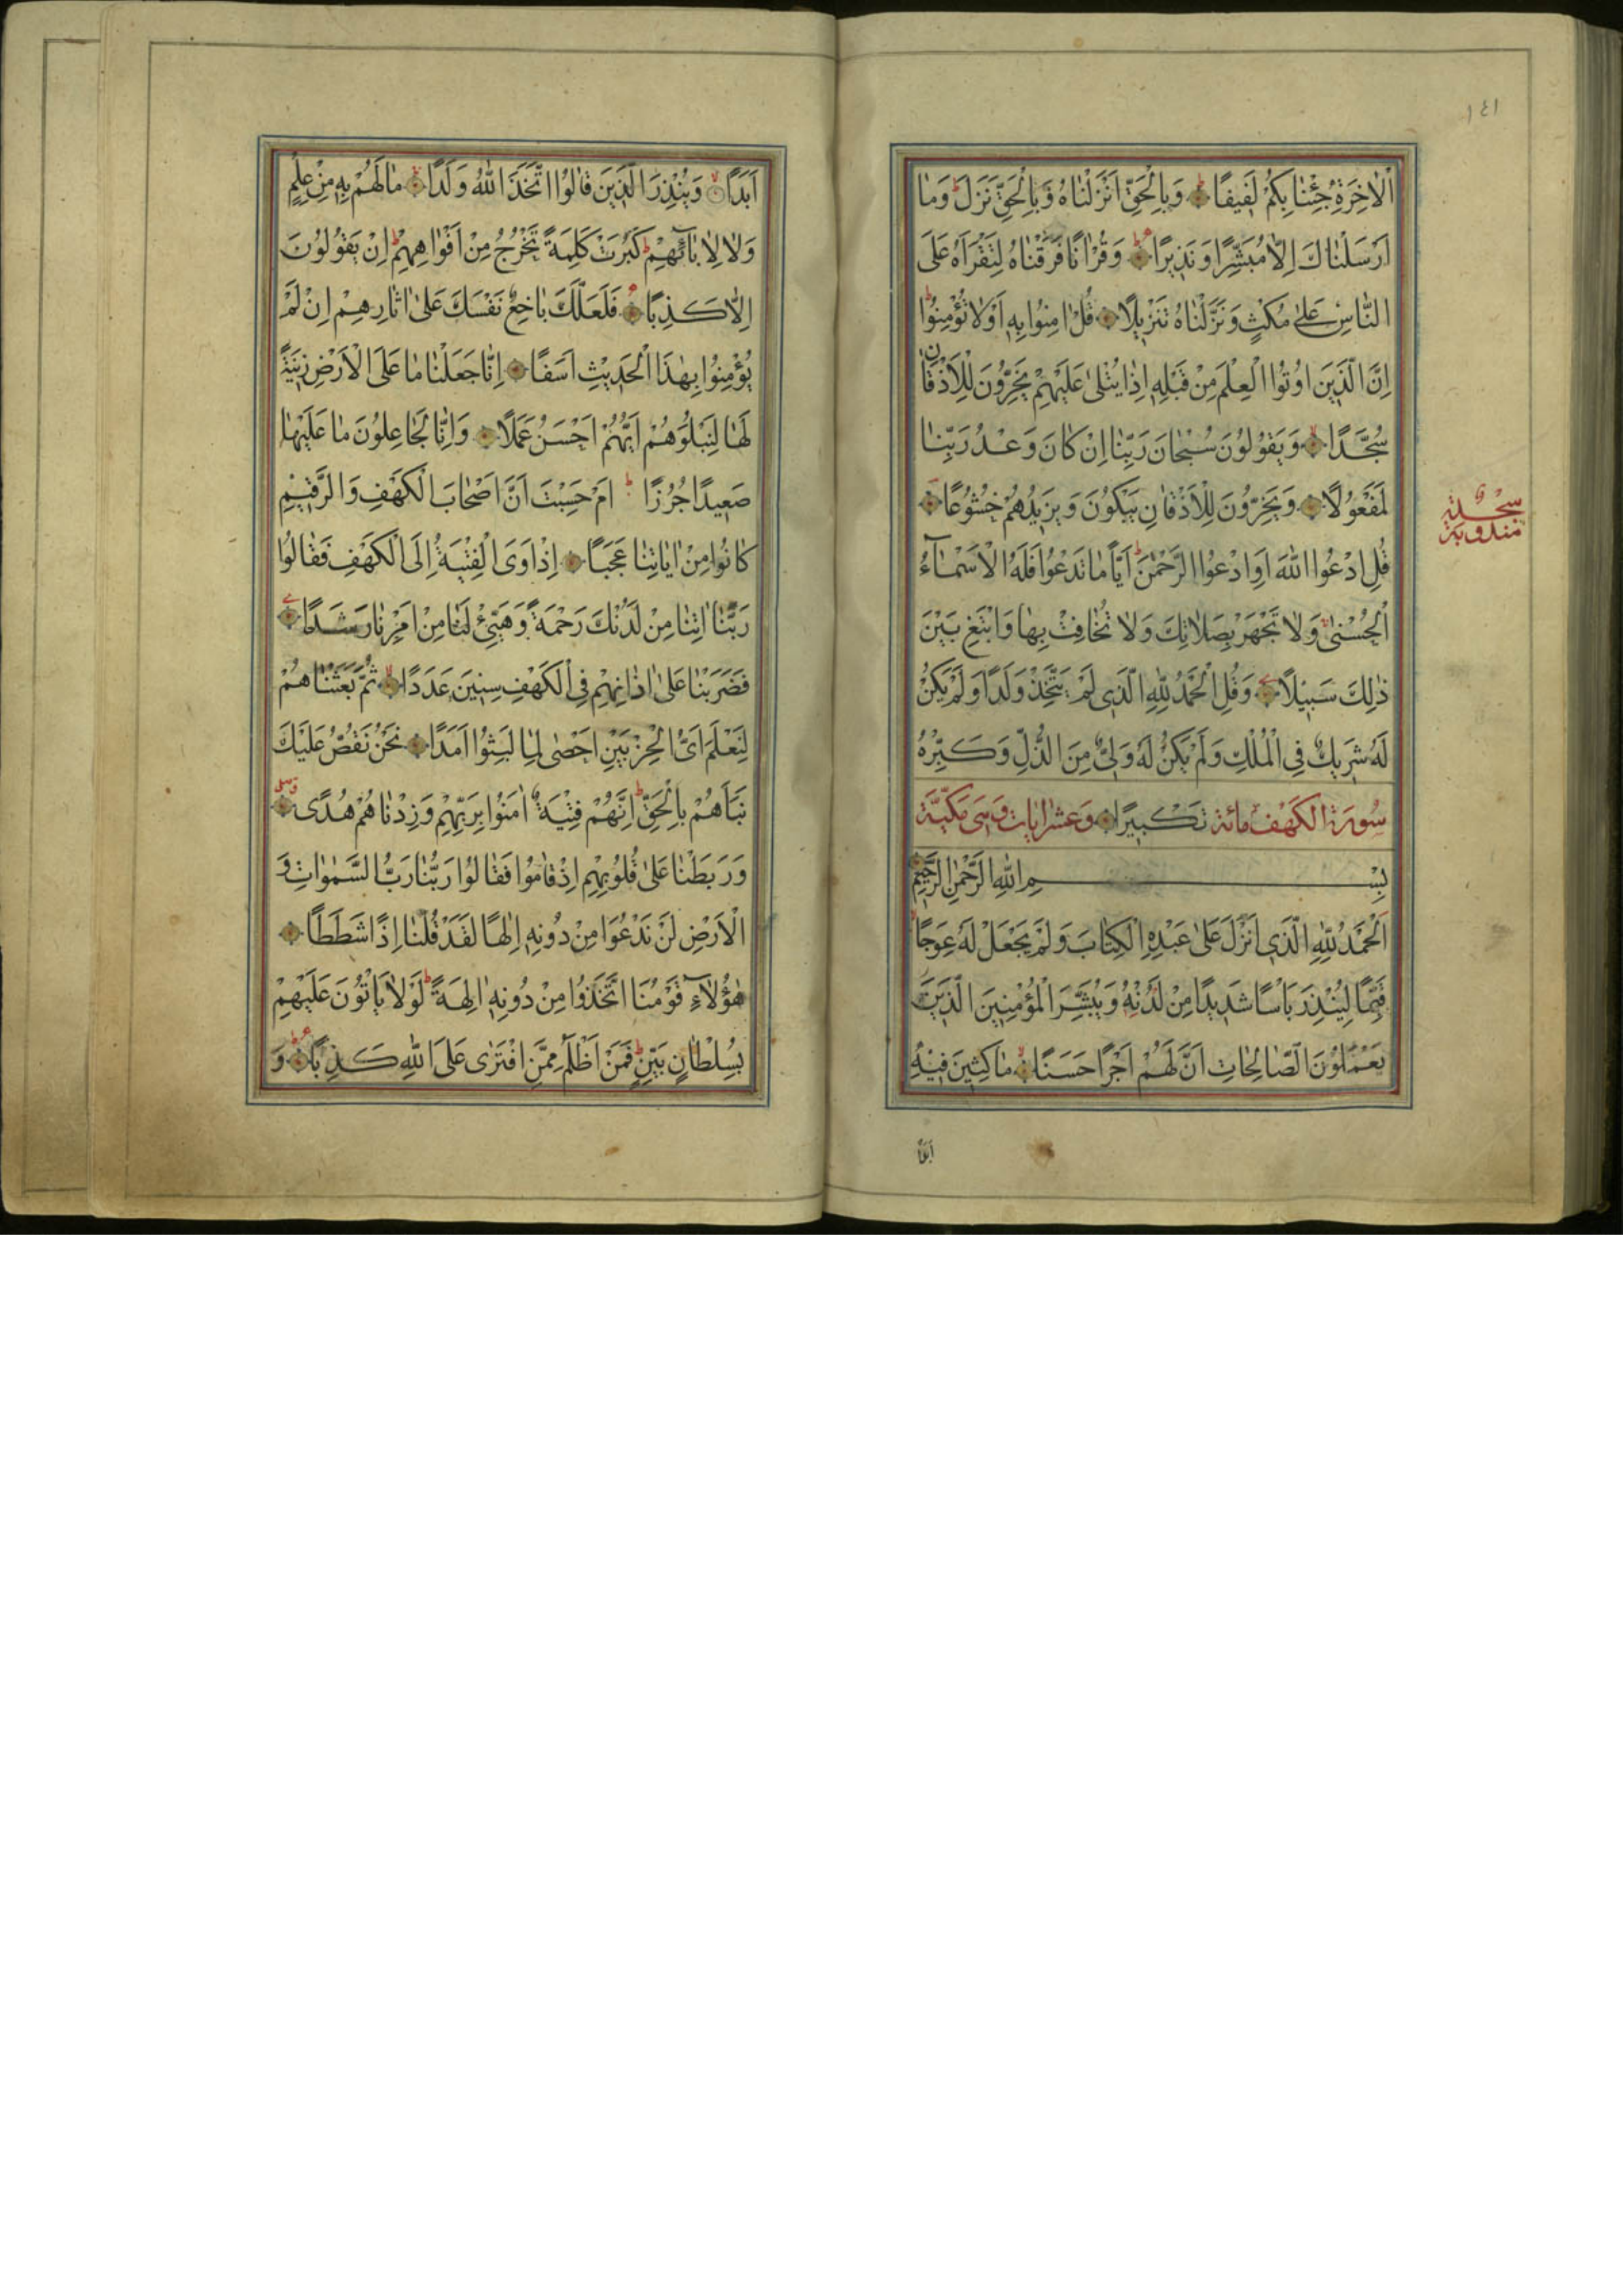 ١٤١
اْلاٰخِرَةِ جِئْنٰا بِكُمْ لَفِيفًا وَبِالْحَقِّ اَنْزَلْنٰاهُ وَبِالْحَقِّ نَزَلَ وَمٰا
اَرْسَلْنٰاكَ اِلاّٰ مُبَشِّرًا وَنَذِيرًا وَقُرْاٰنًا فَرَقْنٰاهُ لِتَقْرَاَهُ عَلَى
النّٰاسِ عَلىٰ مُكْثٍ وَنَزَّلْنٰاهُ تَنْزِيلًا قُلْ اٰمِنُوا بِهِ اَوْ لاٰ تُؤْمِنُوا
اِنَّ الَّذِينَ اُوتُوا الْعِلْمَ مِنْ قَبْلِهِ اِذٰا يُتْلىٰ عَلَيْهِمْ يَخِرُّونَ لِلْاَذْقٰانِ
سُجَّدًا وَيَقُولُونَ سُبْحٰانَ رَبِّنٰا اِنْ كٰانَ وَعْدُ رَبِّنٰا
لَمَفْعُولًا وَيَخِرُّونَ لِلْاَذْقٰانِ يَبْكُونَ وَيَزِيدُهُمْ خُشُوعًا
سجدة مندوبة
قُلِ ادْعُوا اللّٰهَ اَوِ ادْعُوا الرَّحْمٰنَ اَيًّا مٰا تَدْعُوا فَلَهُ الْاَسْمٰآءُ
الْحُسْنىٰ وَلاٰ تَجْهَرْ بِصَلاٰتِكَ وَلاٰ تُخٰافِتْ بِهٰا وَابْتَغِ بَيْنَ
ذٰلِكَ سَبِيلًا وَقُلِ الْحَمْدُ لِلّٰهِ الَّذِي لَمْ يَتَّخِذْ وَلَدًا وَلَمْ يَكُنْ
لَهُ شَرِيكٌ فِي الْمُلْكِ وَلَمْ يَكُنْ لَهُ وَلِيٌّ مِنَ الذُّلِّ وَكَبِّرْهُ
سُورَة الكَهْف مائة تَكْبِيرًا وَعشر اٰيات وَهِىَ مَكِّيَّة
بِسْمِ اللّٰهِ الرَّحْمٰنِ الرَّحِيمِ
اَلْحَمْدُ لِلّٰهِ الَّذِي اَنْزَلَ عَلىٰ عَبْدِهِ الْكِتٰابَ وَلَمْ يَجْعَلْ لَهُ عِوَجًا
قَيِّمًا لِيُنْذِرَ بَاْسًا شَدِيدًا مِنْ لَدُنْهُ وَيُبَشِّرَ الْمُؤْمِنِينَ الَّذِينَ
يَعْمَلُونَ الصّٰالِحٰاتِ اَنَّ لَهُمْ اَجْرًا حَسَنًا مٰاكِثِينَ فِيهِ
اَبَدًا
اَبَدًا وَيُنْذِرَ الَّذِينَ قٰالُوا اتَّخَذَ اللّٰهُ وَلَدًا مٰا لَهُمْ بِهِ مِنْ عِلْمٍ
وَلاٰ لِاٰبٰآئِهِمْ كَبُرَتْ كَلِمَةً تَخْرُجُ مِنْ اَفْوٰاهِهِمْ اِنْ يَقُولُونَ
اِلاّٰ كَذِبًا فَلَعَلَّكَ بٰاخِعٌ نَفْسَكَ عَلىٰ اٰثٰارِهِمْ اِنْ لَمْ
يُؤْمِنُوا بِهٰذَا الْحَدِيثِ اَسَفًا اِنّٰا جَعَلْنٰا مٰا عَلَى الْاَرْضِ زِينَةً
لَهٰا لِنَبْلُوَهُمْ اَيُّهُمْ اَحْسَنُ عَمَلًا وَاِنّٰا لَجٰاعِلُونَ مٰا عَلَيْهٰا
صَعِيدًا جُرُزًا اَمْ حَسِبْتَ اَنَّ اَصْحٰابَ الْكَهْفِ وَالرَّقِيمِ
كٰانُوا مِنْ اٰيٰاتِنٰا عَجَبًا اِذْ اَوَى الْفِتْيَةُ اِلَى الْكَهْفِ فَقٰالُوا
رَبَّنٰا اٰتِنٰا مِنْ لَدُنْكَ رَحْمَةً وَهَيِّئْ لَنٰا مِنْ اَمْرِنٰا رَشَدًا
فَضَرَبْنٰا عَلىٰ اٰذٰانِهِمْ فِي الْكَهْفِ سِنِينَ عَدَدًا ثُمَّ بَعَثْنٰاهُمْ
لِنَعْلَمَ اَىُّ الْحِزْبَيْنِ اَحْصٰى لِمٰا لَبِثُوا اَمَدًا نَحْنُ نَقُصُّ عَلَيْكَ
نَبَاَهُمْ بِالْحَقِّ اِنَّهُمْ فِتْيَةٌ اٰمَنُوا بِرَبِّهِمْ وَزِدْنٰاهُمْ هُدًى
وَرَبَطْنٰا عَلىٰ قُلُوبِهِمْ اِذْ قٰامُوا فَقٰالُوا رَبُّنٰا رَبُّ السَّمٰوٰاتِ وَ
الْاَرْضِ لَنْ نَدْعُوَا مِنْ دُونِهِ اِلٰهًا لَقَدْ قُلْنٰا اِذًا شَطَطًا
هٰؤُلاٰءِ قَوْمُنَا اتَّخَذُوا مِنْ دُونِهِ اٰلِهَةً لَوْلاٰ يَاْتُونَ عَلَيْهِمْ
بِسُلْطٰانٍ بَيِّنٍ فَمَنْ اَظْلَمُ مِمَّنِ افْتَرٰى عَلَى اللّٰهِ كَذِبًا وَ